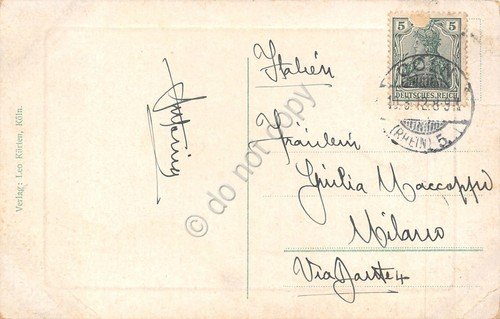 Verlag: Leo Kürten, Köln.
Antonius
Italien
5 5
DEUTSCHES REICH
(RHEIN) 5.
Fräulein
Giulia Maccappi
Milano
Via Dante 4
do not copy